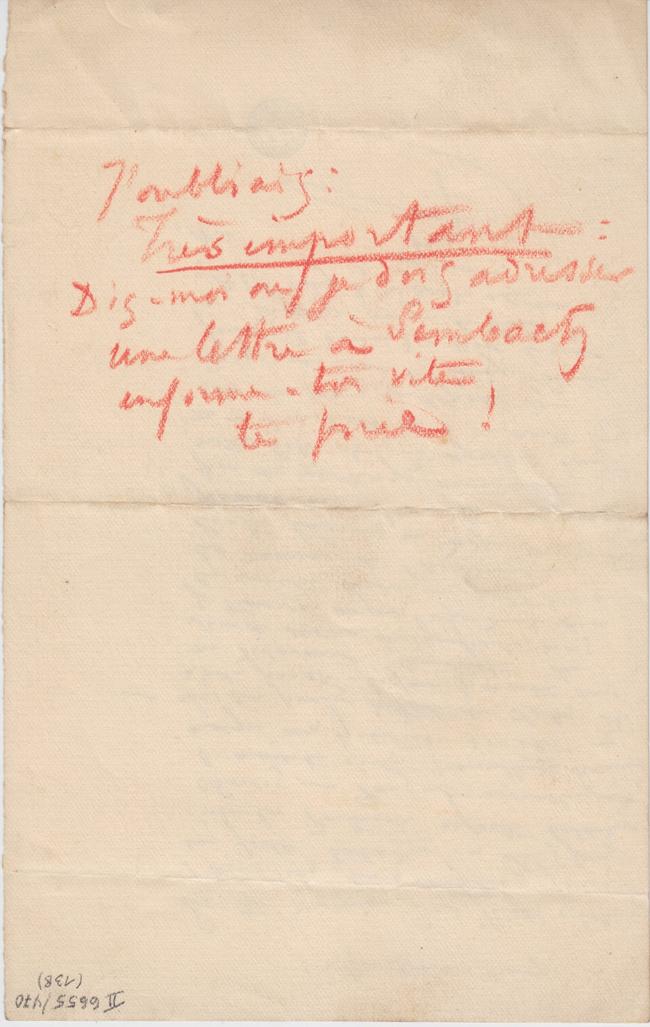 J'oubliais :
Très important :
Dis-moi où je dois adresser
une lettre à Sembach,
informe-toi vite
te prie !
II 6655/470
(138)